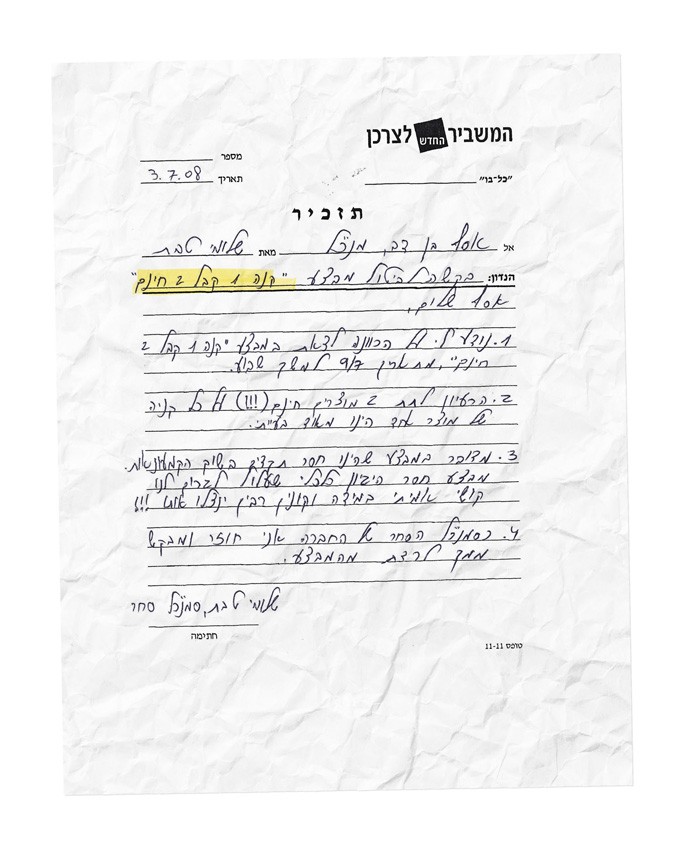 המשביר החדש לצרכן
מספר
תאריך 3.7.08
"כל-בו"
תזכיר
אל אסף בן דב, מנכ"ל מאת שלומי טבת
הנדון: בקשה לביטול מבצע "קנה 1 קבל 2 חינם"
אסף שלום,
1. נודע לי על הכוונה לצאת במבצע "קנה 1 קבל 2
חינם", מתאריך 9/7 למשך שבוע.
2. הרעיון לתת 2 מוצרים חינם (!!!) על כל קניה
של מוצר אחד הינו מאוד בעייתי.
3. מדובר במבצע שהינו חסר תקדים בשוק הקמעונאות.
מבצע חסר היגיון כלכלי שעלול לגרום לנו
קושי אמיתי במידה וקונין רבין ינצלו אותו !!!
4. כסמנכ"ל הסחר של החברה אני חוזר ומבקש
ממך לרדת מהמבצע.
שלומי טבת, סמנכ"ל סחר
חתימה
טופס 11-11